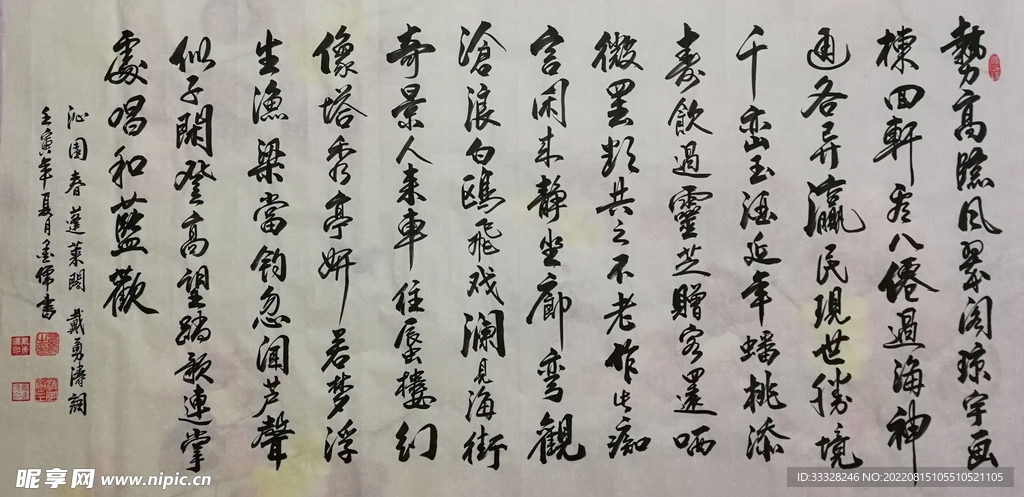 勢高臨風翠阁琼宇画
棟回軒看八僊過海神
通各异瀛民現世勝境
千峦玉酒延年蟠桃添
寿飲過靈芝贈客還哂
微罢类共之不老作此痴
言闲来静坐廊弯觀
滄浪白鷗飛戏澜見海街
奇景人来車往蜃樓幻
像塔秀亭妍若梦浮
生漁梁當钓忽闻芦聲
似子閑登高望踏歌連掌
處唱和藍歡
沁園春 蓬萊閣 戴勇濤詞
壬寅年夏月 儒書
昵享网 www.nipic.cn
ID:33328246 NO:20220815105510521105